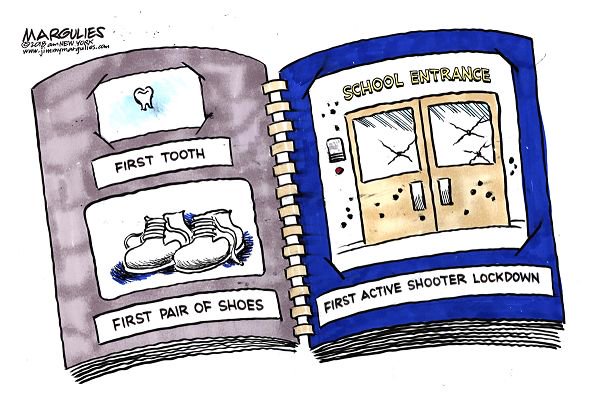 MARGULIES
©2018 amNEW YORK
www.jimmymargulies.com
FIRST TOOTH
FIRST PAIR OF SHOES
SCHOOL ENTRANCE
FIRST ACTIVE SHOOTER LOCKDOWN